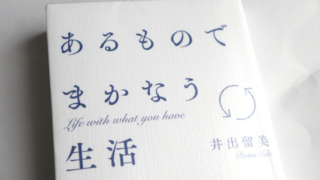 あるもので
まかなう
Life with what you have
生活
井出留美